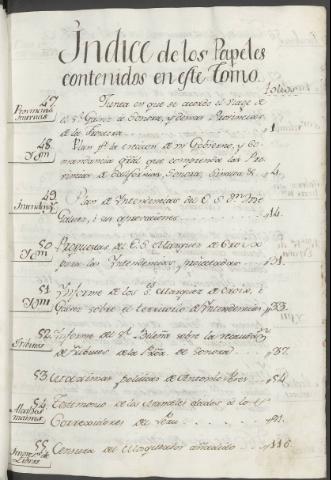 Índice de los Papeles
contenidos en este Tomo.
Folios
47.
Provincias
Internas
Junta en que se acordó el viage de
el Sr. Galvez a Sonora, y demas Provincias
de la Frontera 1.
48.
Ydm
Plan para la ereccion de un Gobierno, y Co-
mandancia gral que comprenda las Pro-
vincias de Californias, Sonora, Sinaloa &. 4.
49.
Intendencias
Plan de Intendencias de
Galvez, i sus operaciones 14.
50
Ydm
Propuestas de E. S. Marques de Croix
para las Intendencias, proyectadas 31.
51
Ydm
Informe de los Sres Marques de Croix, i
Galvez sobre el territorio de Intendencias 33.
52.
Tributos
Informe del Sr. Bileña sobre la recaudon
de Tributos de la Prova. de Sonora 37.
53.
politicas de Antonio Perez 54.
54
Alcaldes
maiores
Testimonio de los Aranceles dados a los
Corregidores del Peru 91.
55
Impresn. de
Libros
Censura del Magistrado añadido 116.